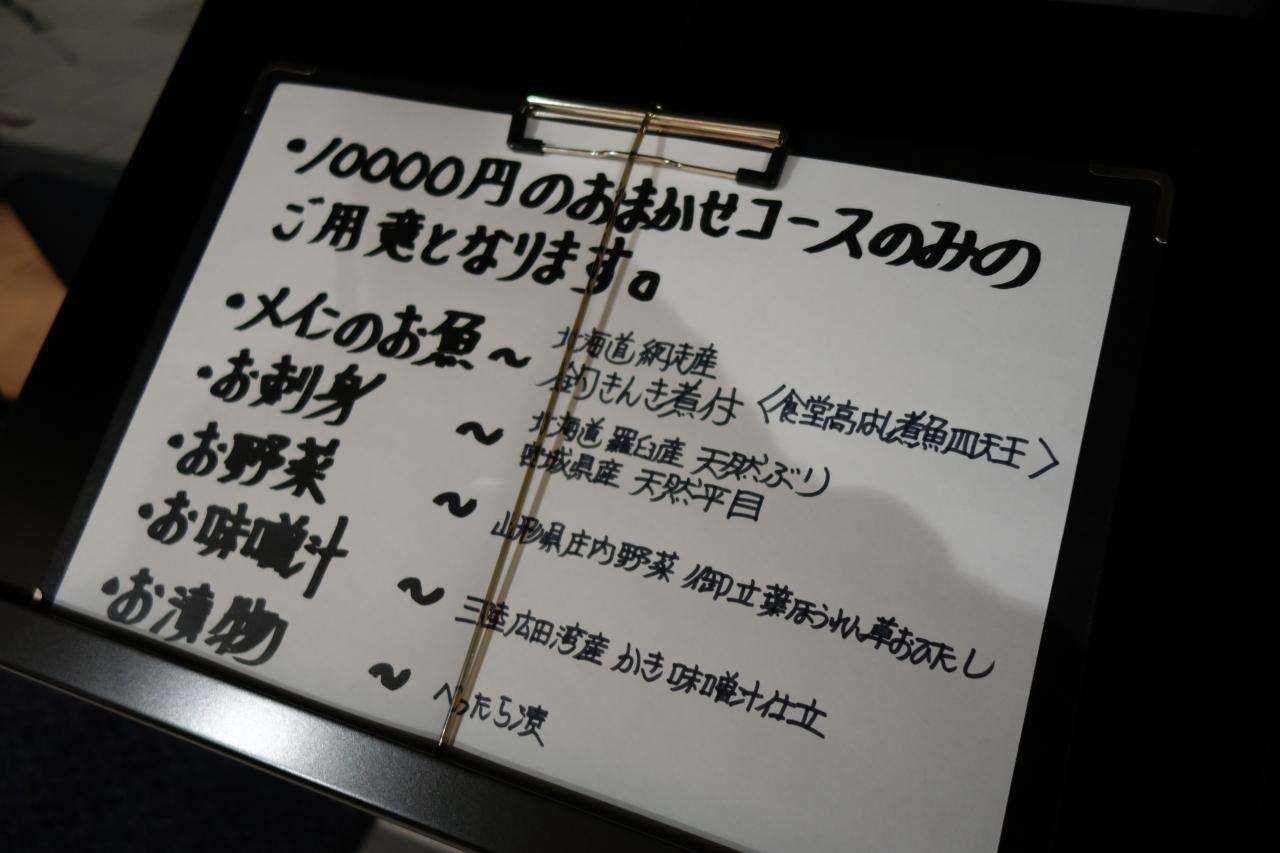 ・10000円のおまかせコースのみの
ご用意となります。
・メインのお魚～ 北海道網走産
釣きんき煮付〈食堂高はし煮魚四天王〉
・お刺身 ～ 北海道羅臼産 天然ぶり
宮城県産 天然平目
・お野菜 ～ 山形県庄内野菜 御立葉ほうれん草おひたし
・お味噌汁 ～ 三陸広田湾産 かき味噌汁仕立
・お漬物 ～ べったら漬